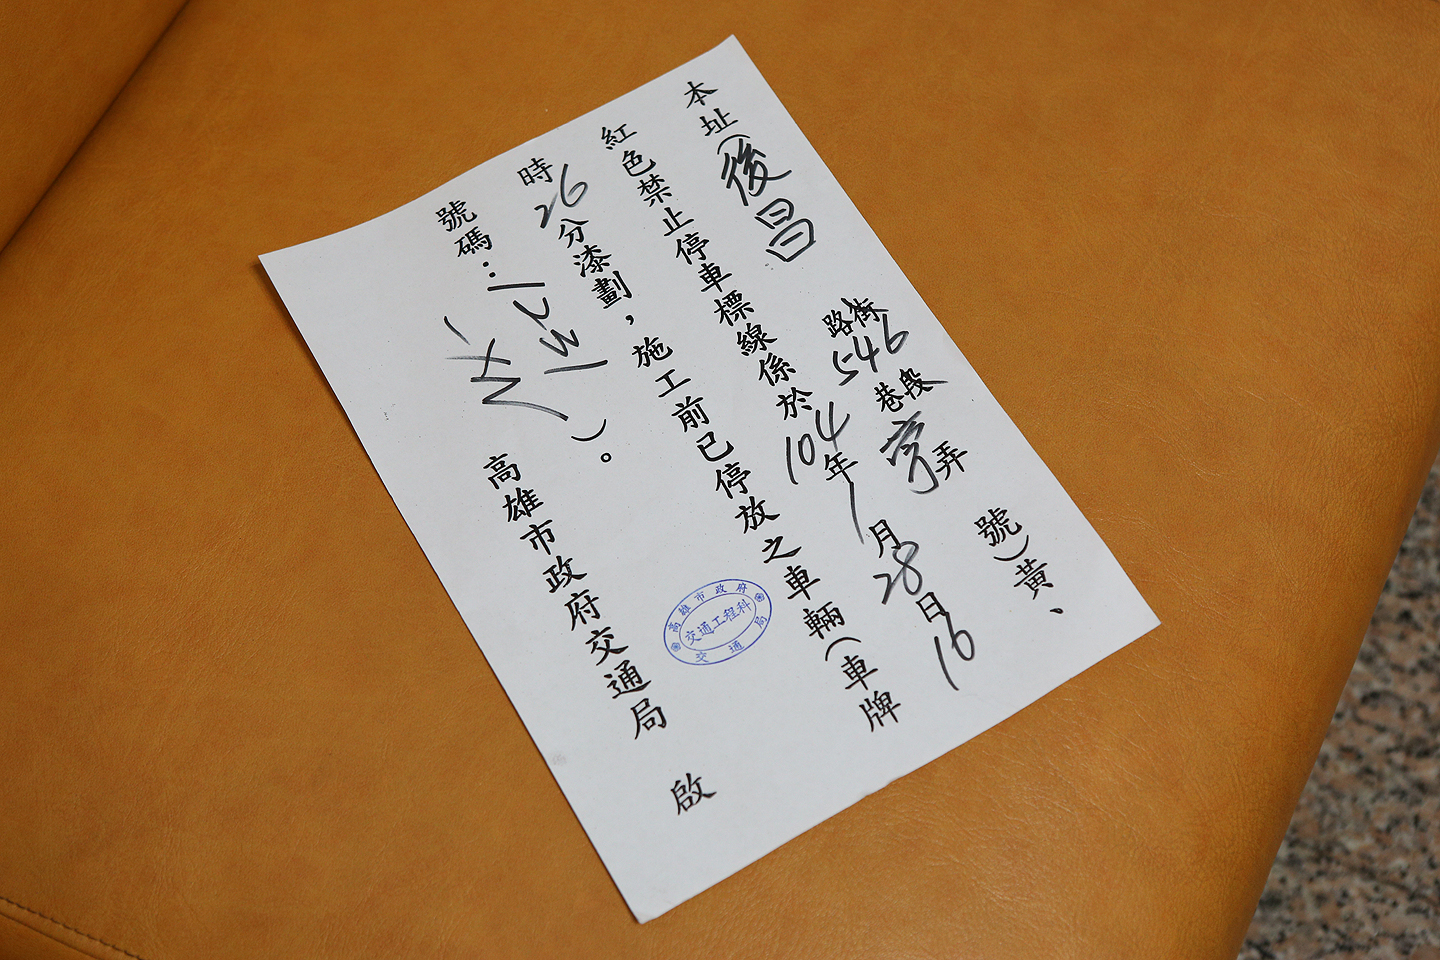 本址(後昌 路街 546 巷段 旁 弄 號)黃、
紅色禁止停車標線係於104年1月28日16
時26分漆劃，施工前已停放之車輛(車牌
號碼： )。
高雄市政府交通局 啟
高雄市政府
交通工程科
交通局